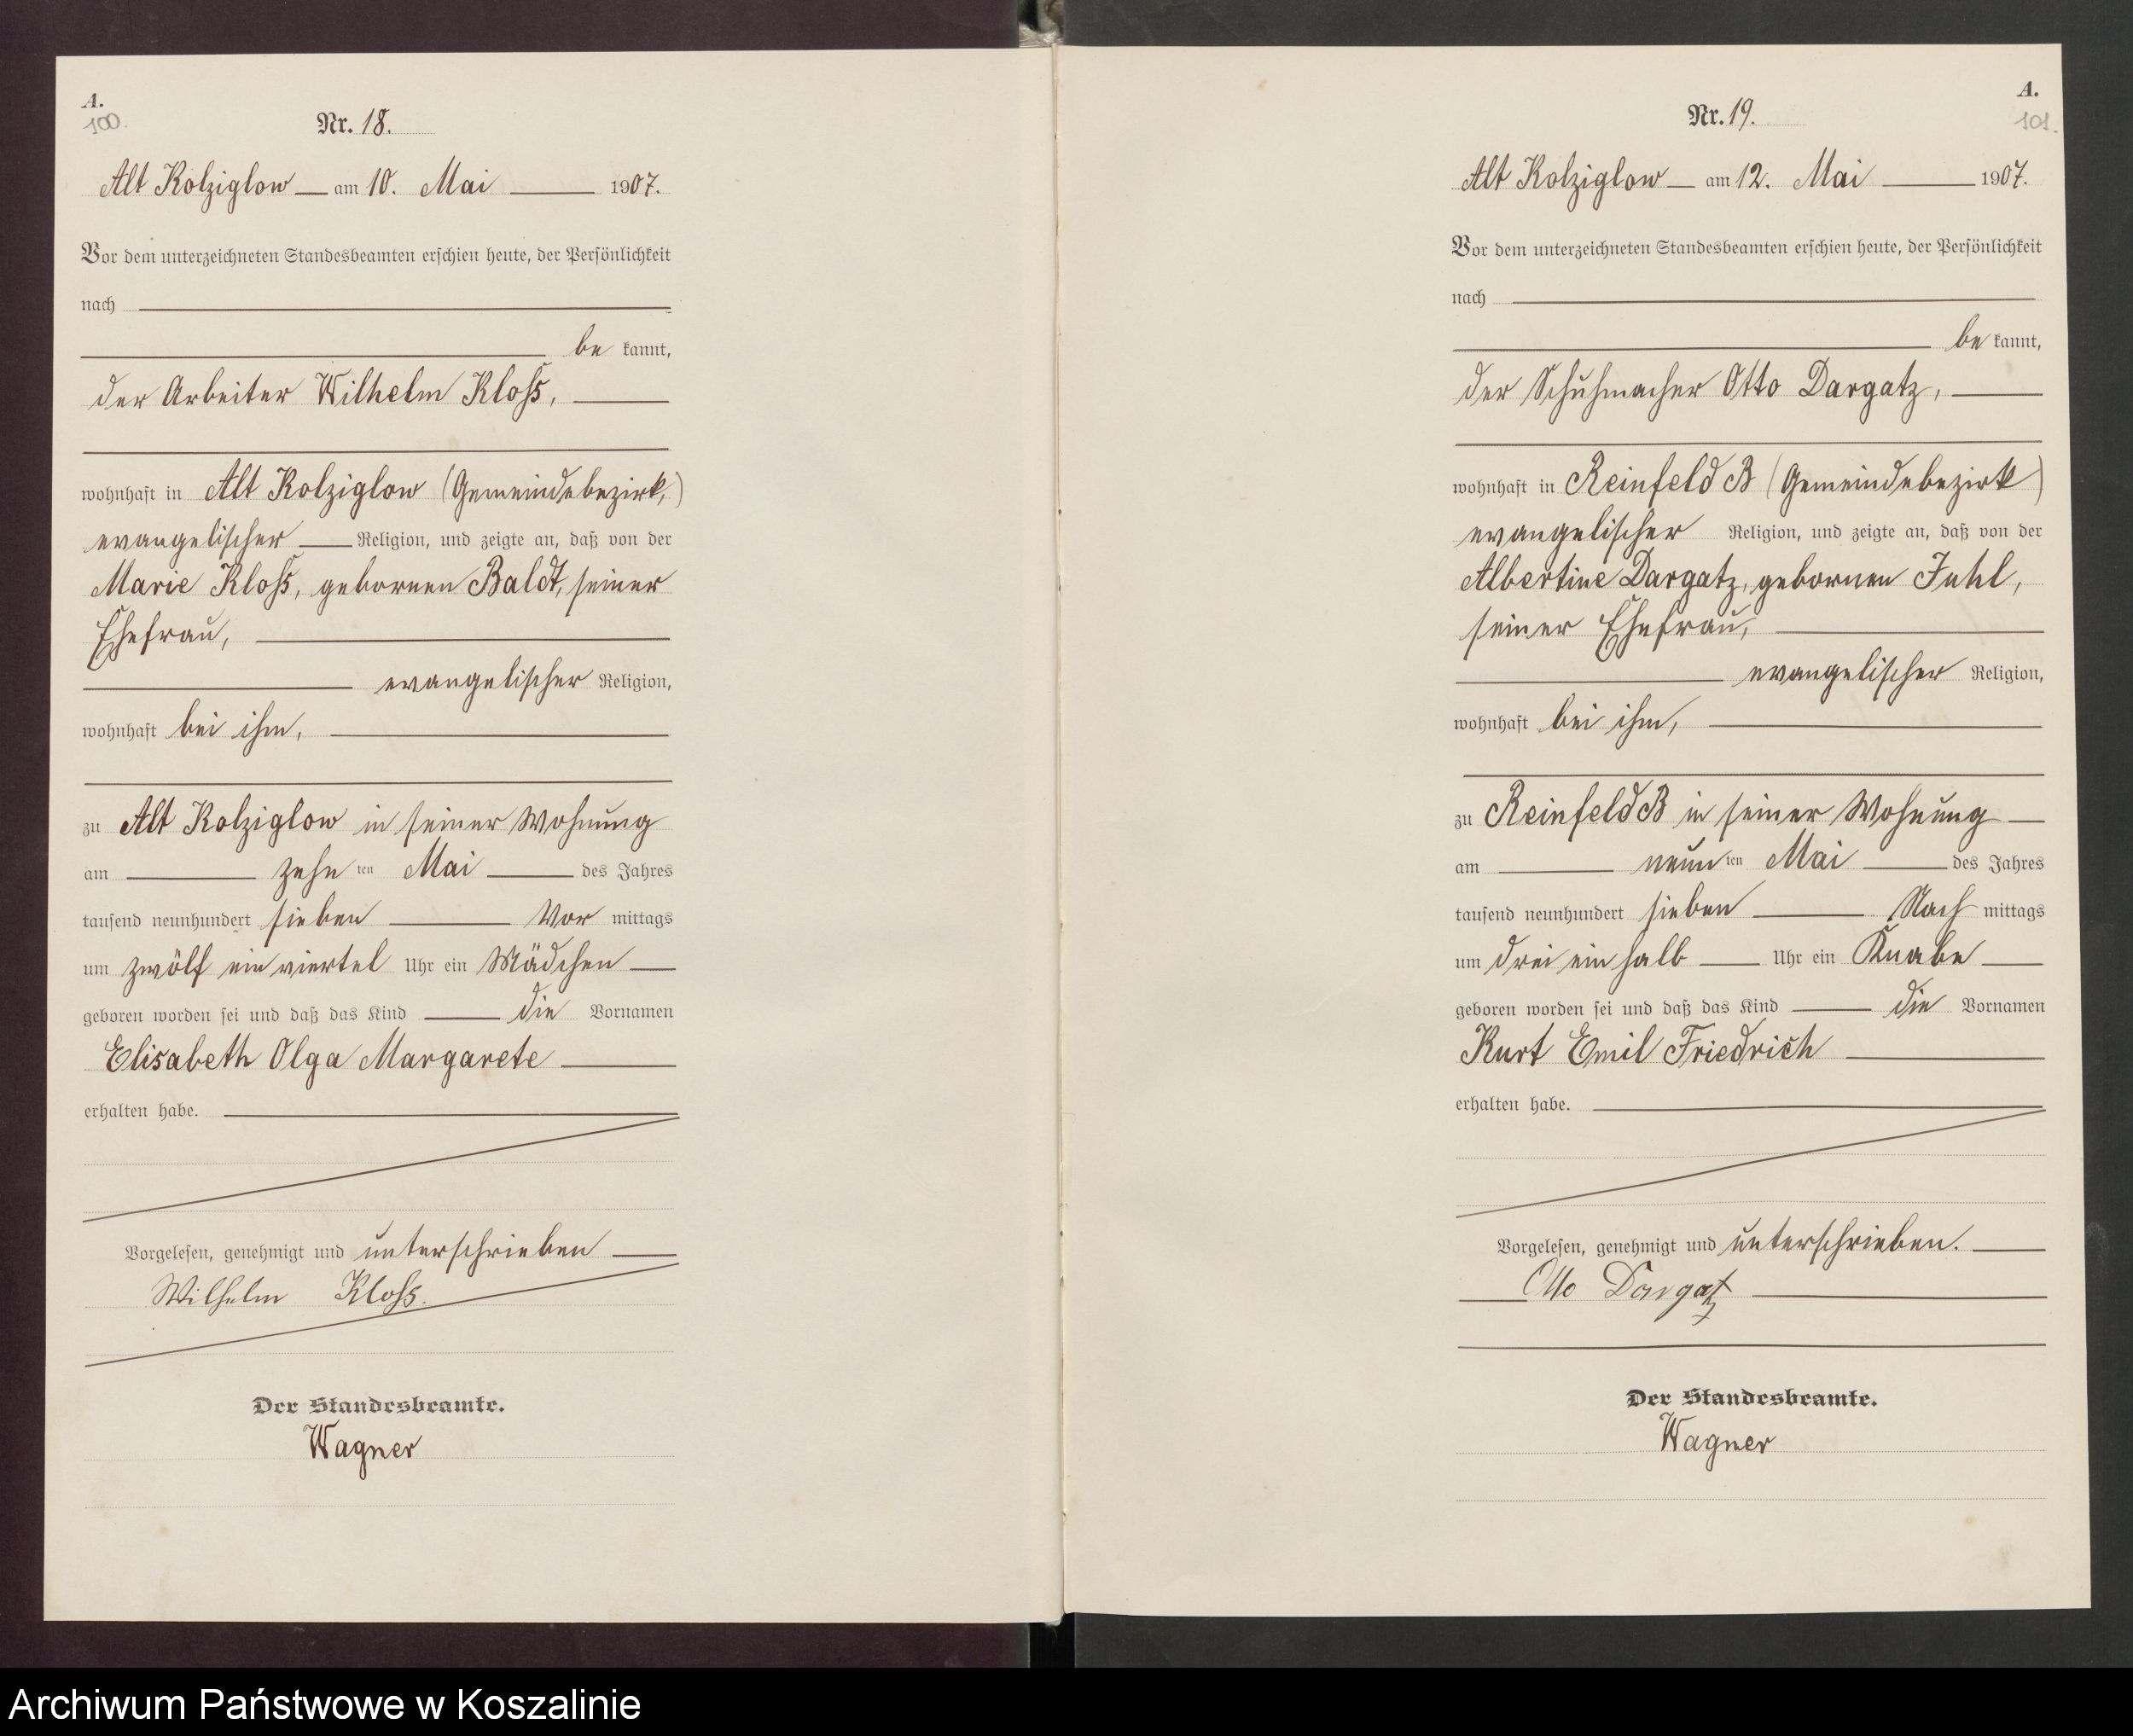 A.
100.
Nr. 18.
Alt Kolziglow am 10. Mai 1907.
Vor dem unterzeichneten Standesbeamten erschien heute, der Persönlichkeit
nach
be kannt,
der Arbeiter Wilhelm Kloß,
wohnhaft in Alt Kolziglow (Gemeindebezirk,)
evangelischer Religion, und zeigte an, daß von der
Marie Kloß, gebornen Baldt, seiner
Ehefrau,
evangelischer Religion,
wohnhaft bei ihm,
zu Alt Kolziglow in seiner Wohnung
am zehn ten Mai des Jahres
tausend neunhundert sieben Vor mittags
um zwölf ein viertel Uhr ein Mädchen
geboren worden sei und daß das Kind die Vornamen
Elisabeth Olga Margarete
erhalten habe.
Vorgelesen, genehmigt und unterschrieben
Wilhelm Kloß.
Der Standesbeamte.
Wagner
A.
101.
Nr. 19.
Alt Kolziglow am 12. Mai 1907.
Vor dem unterzeichneten Standesbeamten erschien heute, der Persönlichkeit
nach
be kannt,
der Schuhmacher Otto Dargatz,
wohnhaft in Reinfeld B (Gemeindebezirk)
evangelischer Religion, und zeigte an, daß von der
Albertine Dargatz, gebornen Juhl,
seiner Ehefrau,
evangelischer Religion,
wohnhaft bei ihm,
zu Reinfeld B in seiner Wohnung
am neun ten Mai des Jahres
tausend neunhundert sieben Nach mittags
um drei ein halb Uhr ein Knabe
geboren worden sei und daß das Kind die Vornamen
Kurt Emil Friedrich
erhalten habe.
Vorgelesen, genehmigt und unterschrieben.
Otto Dargatz
Der Standesbeamte.
Wagner
Archiwum Państwowe w Koszalinie